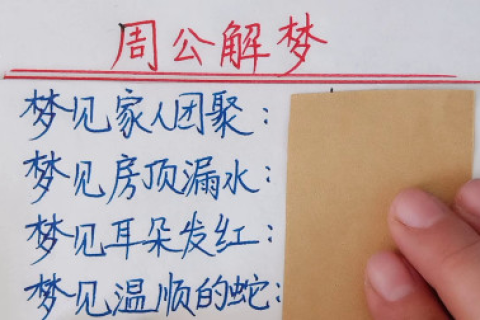 周公解梦
梦见家人团聚：
梦见房顶漏水：
梦见耳朵发红：
梦见温顺的蛇：